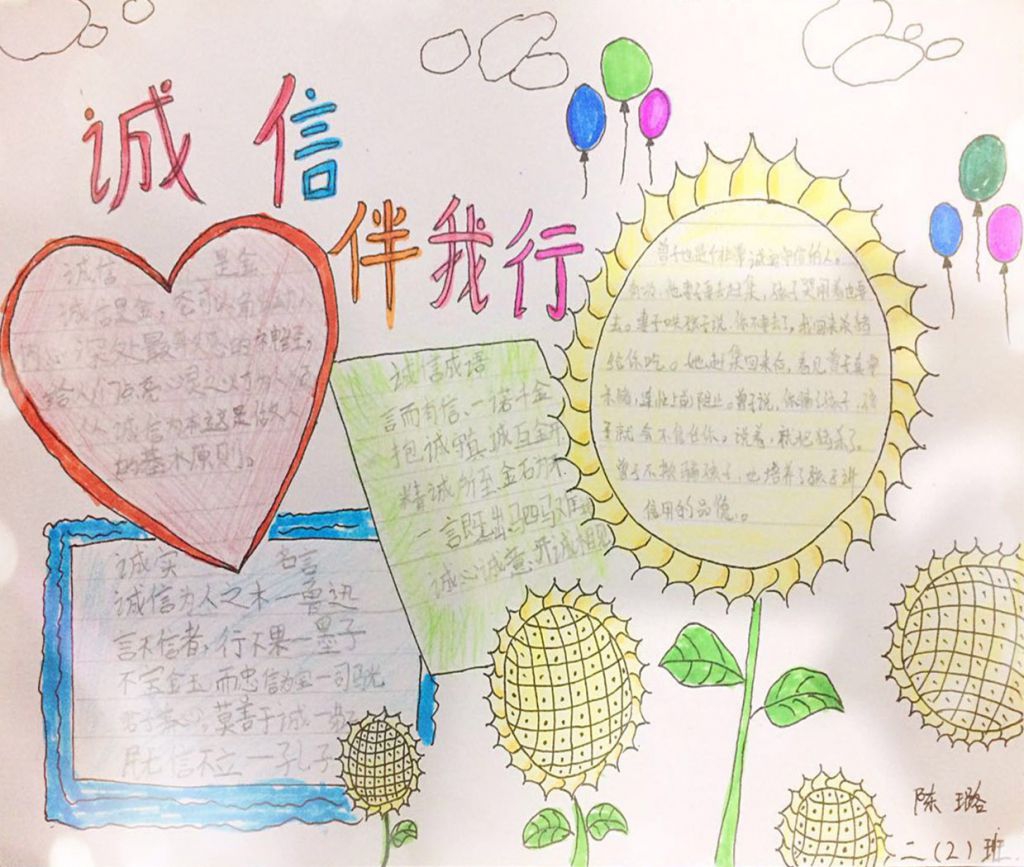 诚信
伴我行
诚信 是金
诚信是金,它可以
内心深处最
给人们点亮心灵之灯为人
诚信为本这是做人
的基本原则。
诚信成语
言而有信、一诺千金
抱诚守真 诚
精诚所至金石为
一言既出驷马难
诚心诚意 开诚相见
诚实 名言
诚信为人之本—鲁迅
言不信者,行不果—墨子
不宝金玉而忠信为宝—司
莫善于诚—
民无信不立—孔子
曾子也是个 诚实守信的人。
有一次,他妻子要去赶集,孩子哭闹着也要
去。妻子哄孩子说,你不要去了,我回来杀猪
给你吃。她赶集回来后,看见曾子真要
杀猪,连忙上前阻止。曾子说,你骗了孩子,孩
子就会不信任你。说着,就把猪杀了。
曾子不 骗孩子,也培养了孩子讲
信用的品德。
陈璐
二(2)班